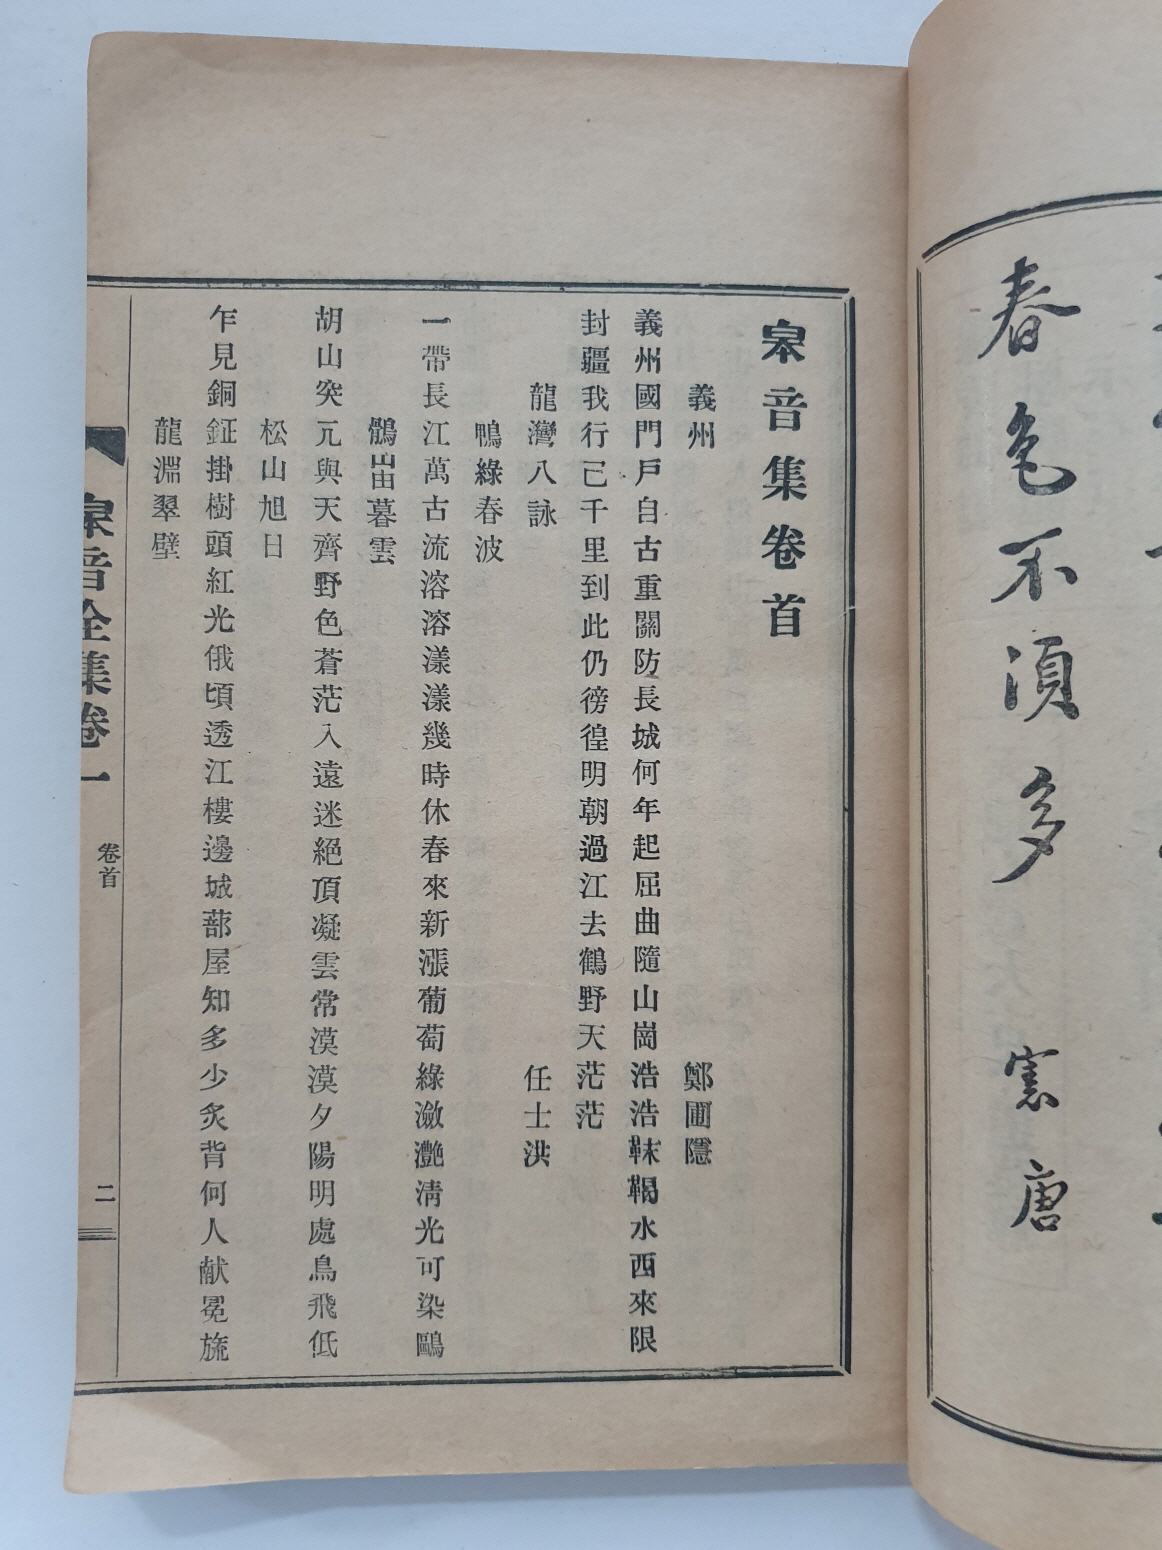 春色不須多
憲唐
皋音集卷首
義州　鄭圃隱
義州國門戶自古重關防長城何年起屈曲隨山崗浩浩靺鞨水西來限
封疆我行已千里到此仍徬徨明朝過江去鶴野天茫茫
龍灣八詠　任士洪
鴨綠春波
一帶長江萬古流溶溶漾漾幾時休春來新漲葡萄綠瀲灩清光可染鷗
鶻山甶暮雲
胡山突兀與天齊野色蒼茫入遠迷絕頂凝雲常漠漠夕陽明處鳥飛低
松山旭日
乍見銅鉦掛樹頭紅光俄頃透江樓邊城蔀屋知多少炙背何人献冕旒
龍淵翠壁
皋音全集卷一
卷首
二